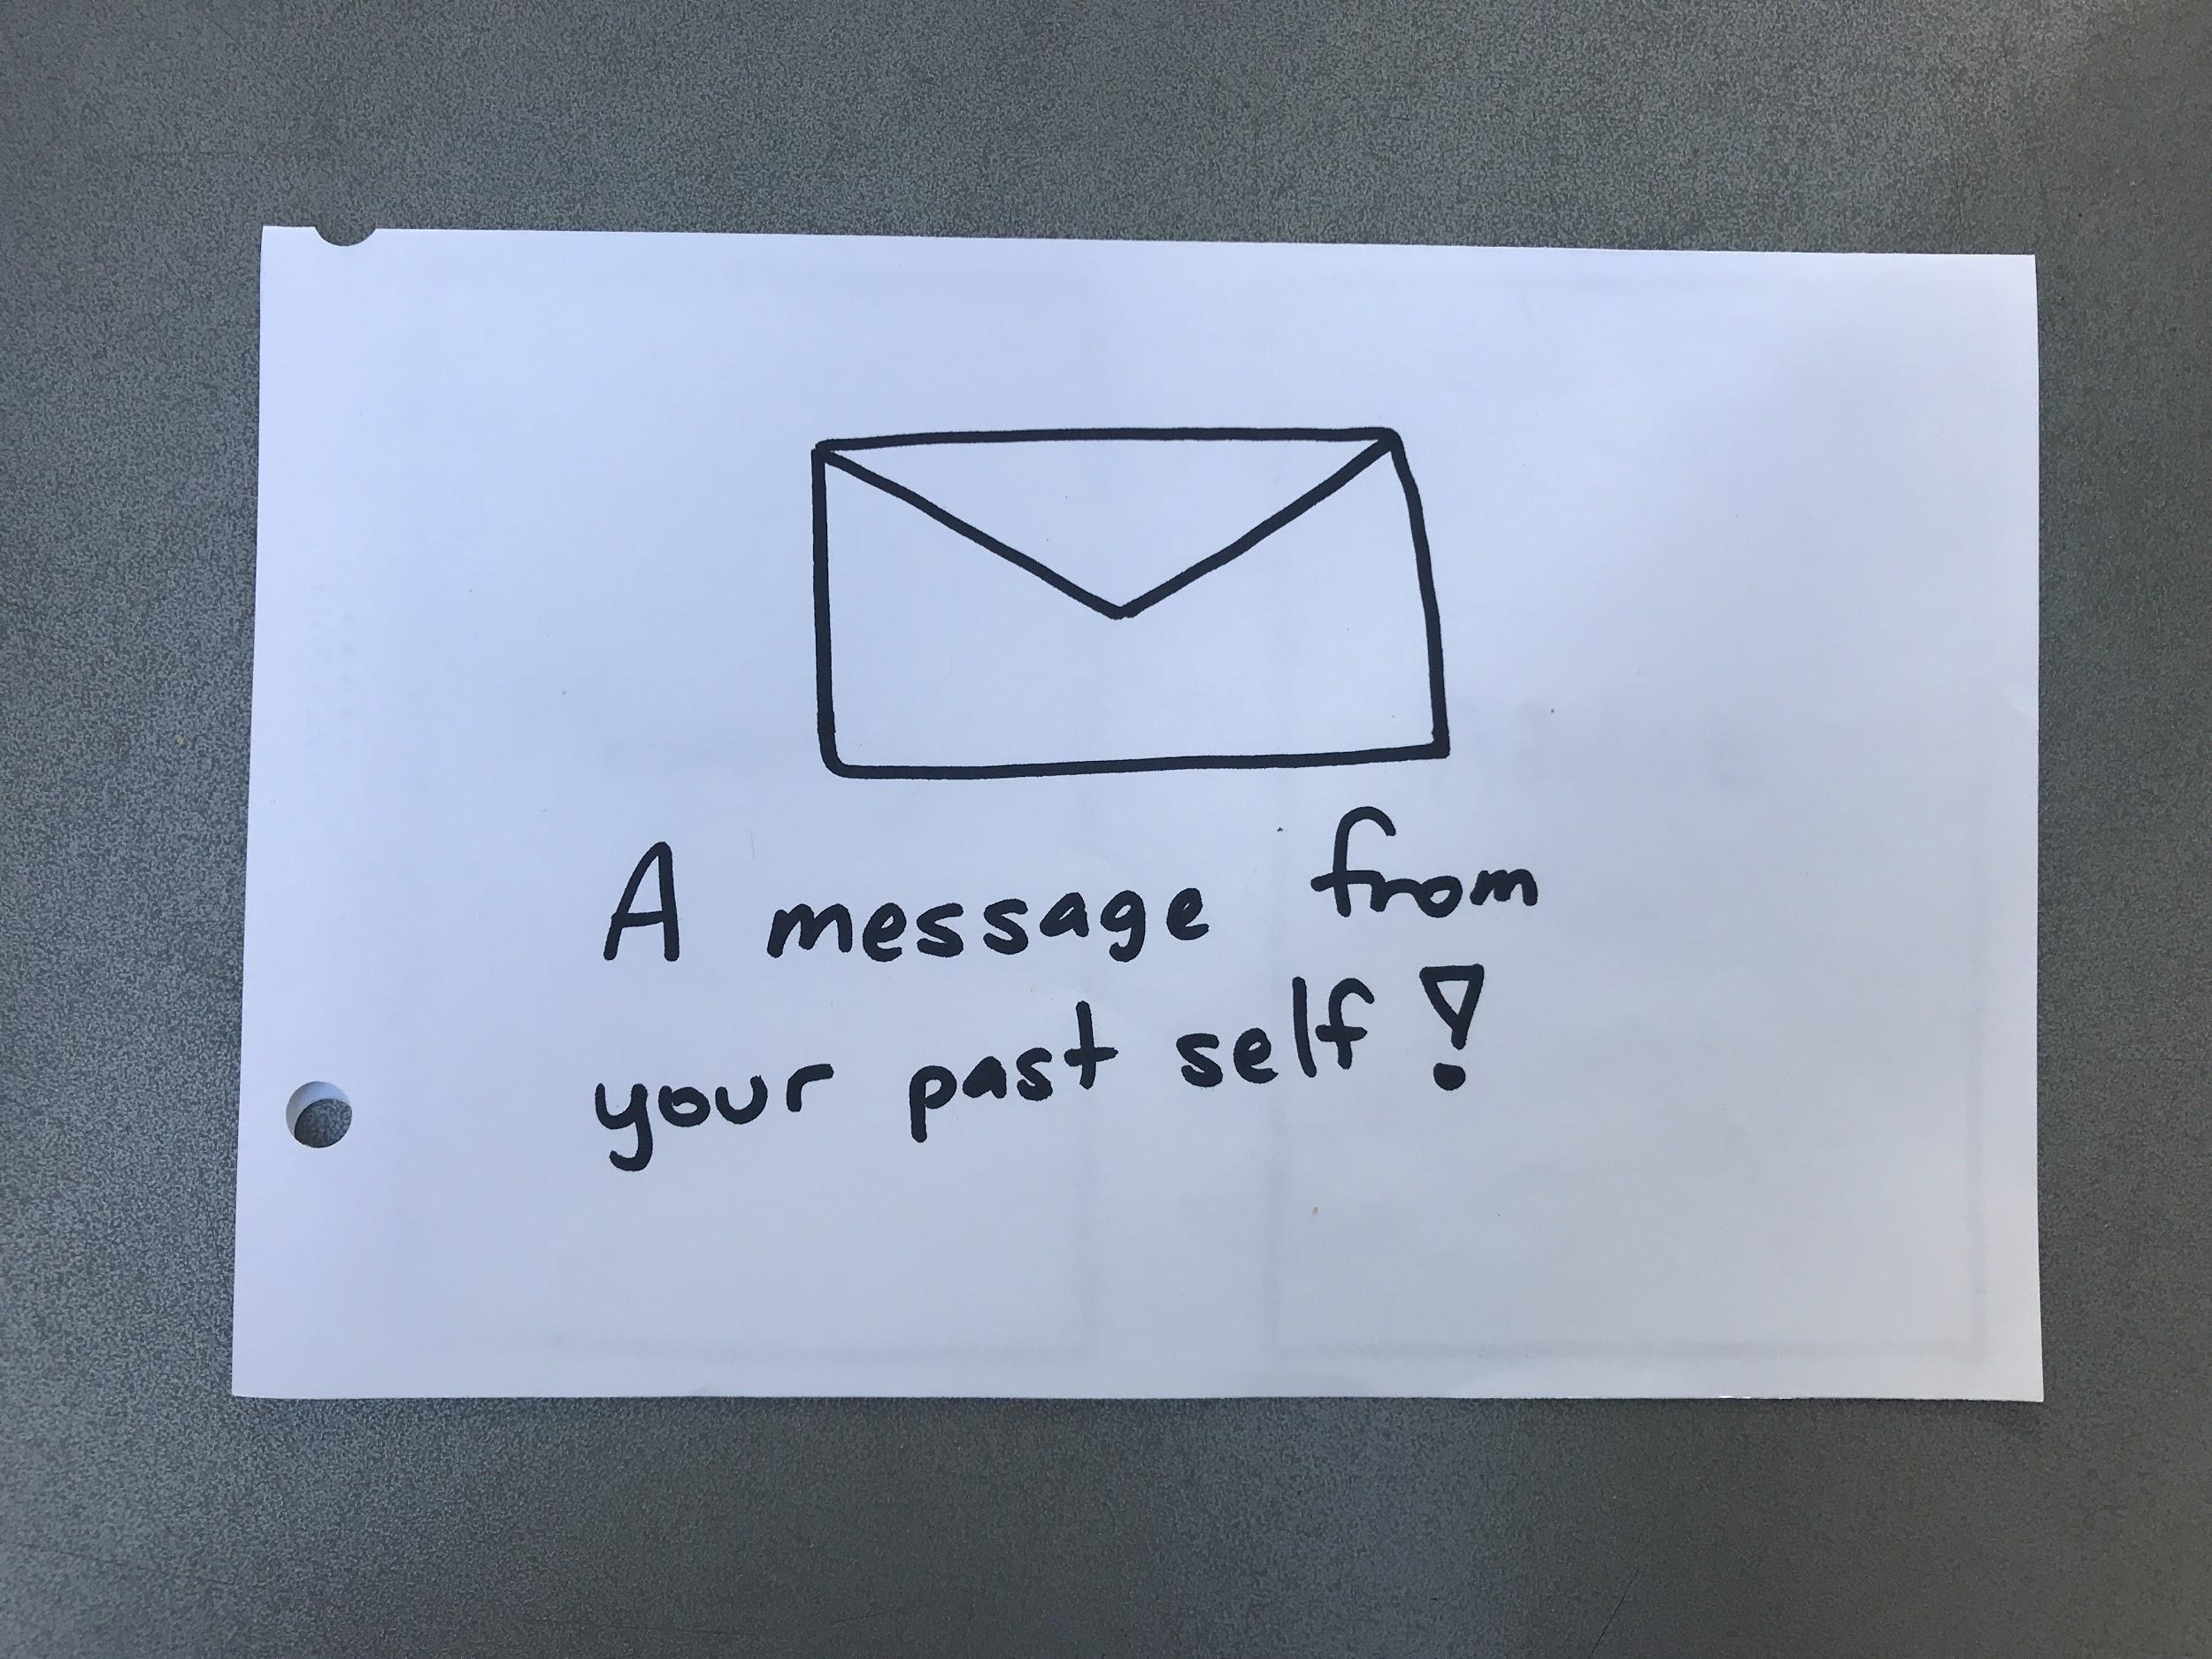 A message from
your past self!